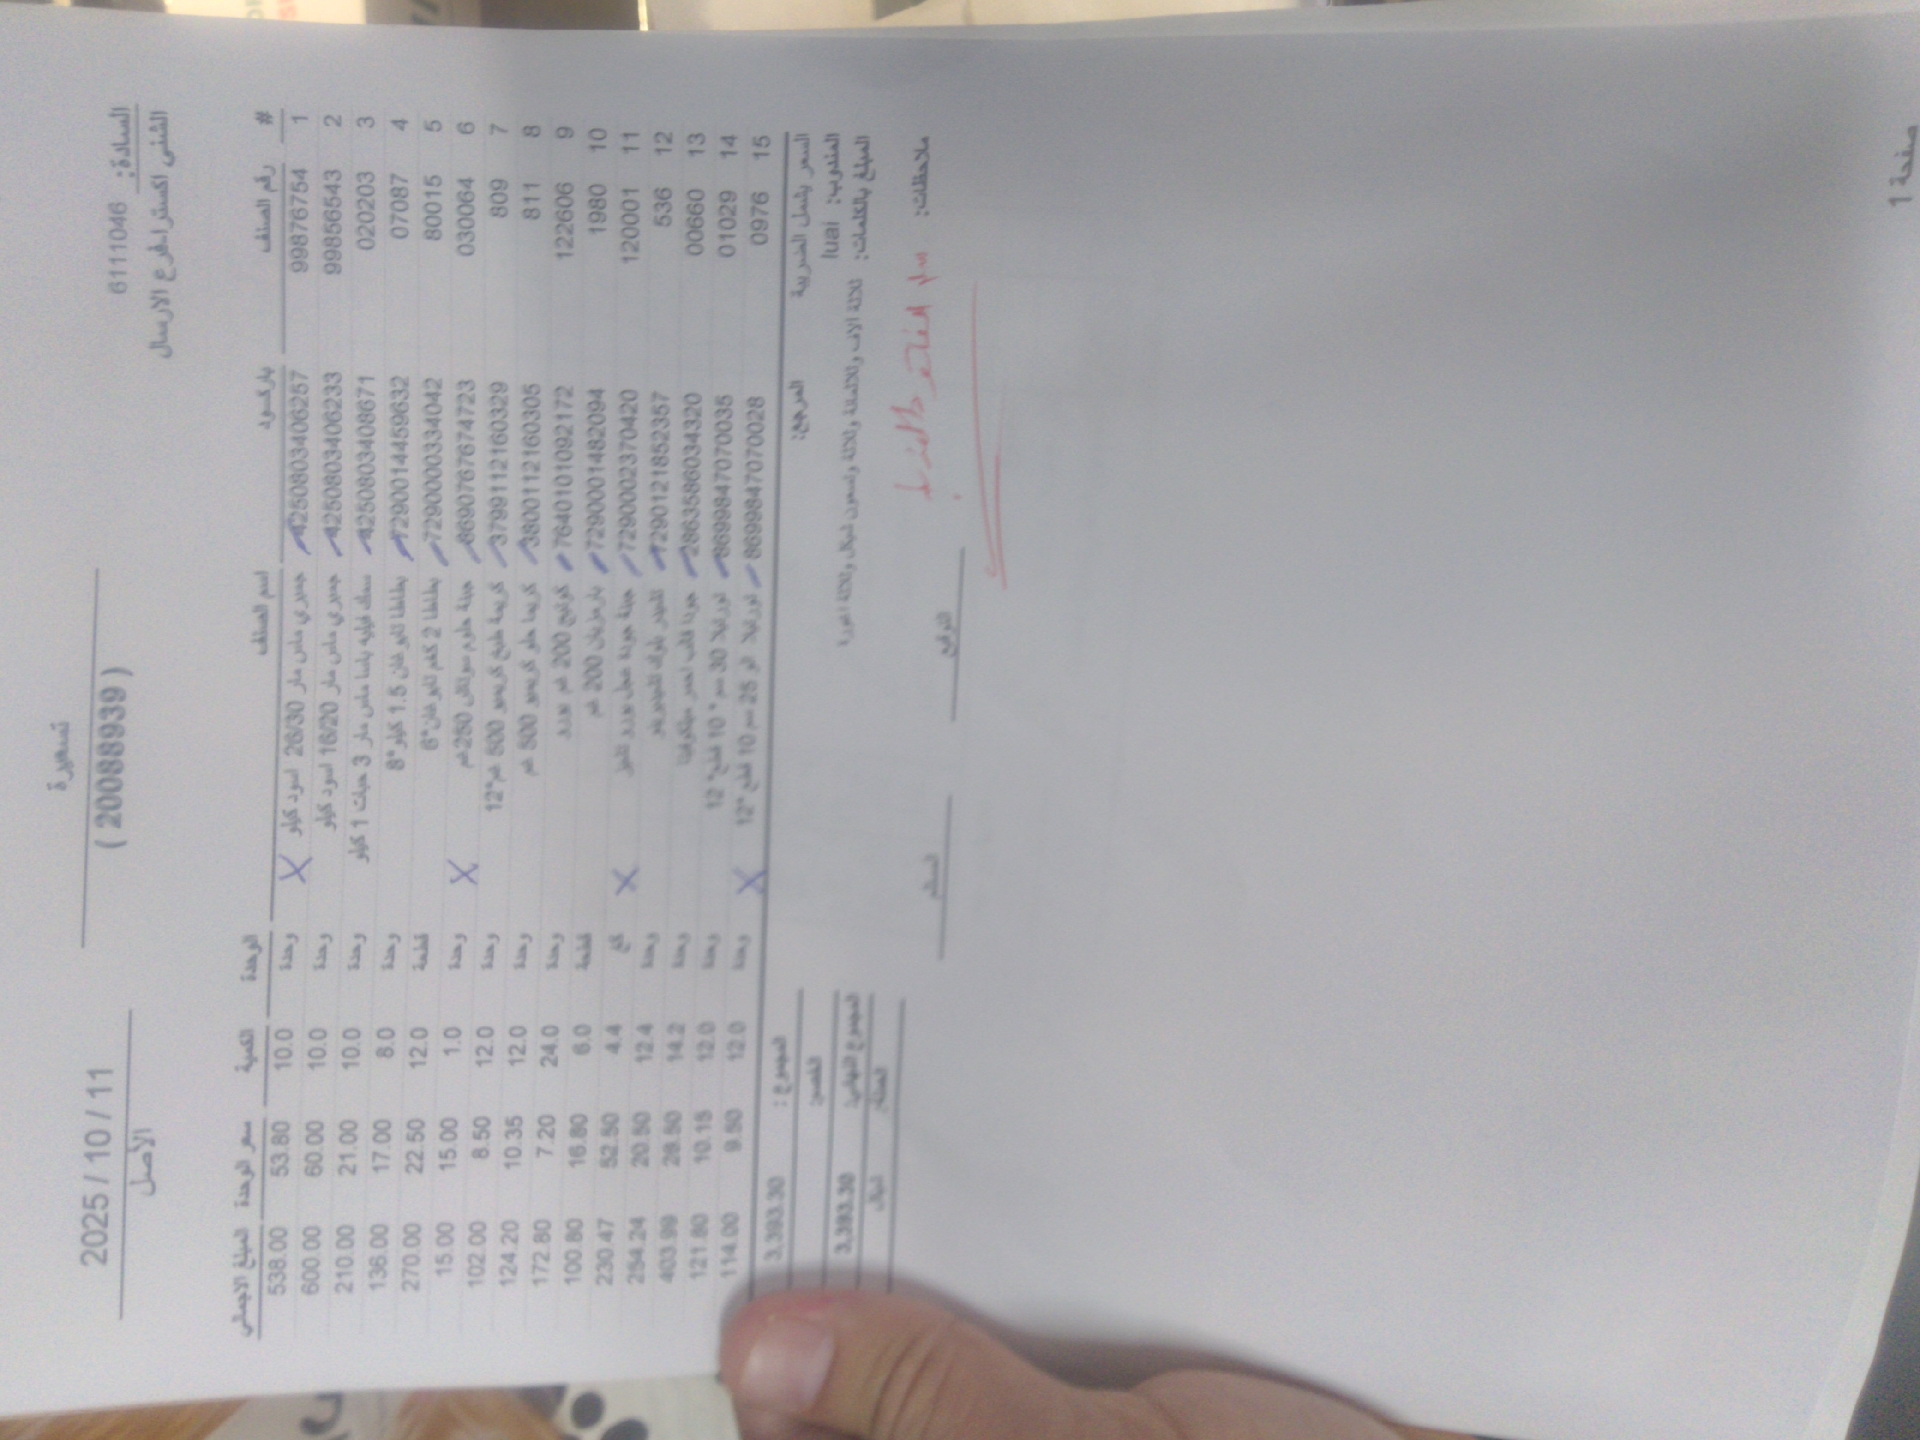 تسعيرة
( 20088939 )
2025 / 10 / 11
الأصل
السادة: 61111046
الشني اكسترا فرع الارسال
# رقم الصنف باركود اسم الصنف الوحدة الكمية سعر الوحدة المبلغ الاجمالي
1 99876754 4250803406257 جمبري ماس مار 26/30 اسود كيلو X وحدة 10.0 53.80 538.00
2 99856543 4250803406233 جمبري ماس مار 16/20 اسود كيلو وحدة 10.0 60.00 600.00
3 020203 4250803408671 سمك فيليه باسا ماس مار 3 حبات 1 كيلو وحدة 10.0 21.00 210.00
4 07087 7290014459632 بطاطا تابو شان 1.5 كيلو*8 وحدة 8.0 17.00 136.00
5 80015 7290003334042 بطاطا 2 كغم تابو شان*6 قطعة 12.0 22.50 270.00
6 030064 8690767674723 جبنة حلوم 250غم X وحدة 1.0 15.00 15.00
7 809 3799112160329 كريمة طبخ كريمو 500 غم*12 وحدة 12.0 8.50 102.00
8 811 3800112160305 كريما حلو كريمو 500 غم وحدة 12.0 10.35 124.20
9 122606 7640101092172 كوتيج 200 غم وحدة 24.0 7.20 172.80
10 1980 7290001482094 بارمزان 200 غم قطعة 6.0 16.80 100.80
11 120001 7290002370420 جبنة X كغ 4.4 52.50 230.47
12 536 7290121852357 وحدة 12.4 20.50 254.24
13 00660 2863586034320 جودا قالب احمر وحدة 14.2 28.50 403.99
14 01029 8699847070035 تورتيلا 30 سم * 10 قطع* 12 وحدة 12.0 10.15 121.80
15 0976 8699847070028 تورتيلا 25 سم 10 قطع *12 X وحدة 12.0 9.50 114.00
السعر يشمل الضريبة المرجع: المجموع : 3,393.30
المندوب: luai الخصم:
المبلغ بالكلمات: ثلاثة الاف وثلاثمائة وثلاثة وتسعون شيكل وثلاثة اغورة المجموع النهائي: 3,393.30
العملة: شيكل
ملاحظات:
التوقيع
المستلم
صفحة 1